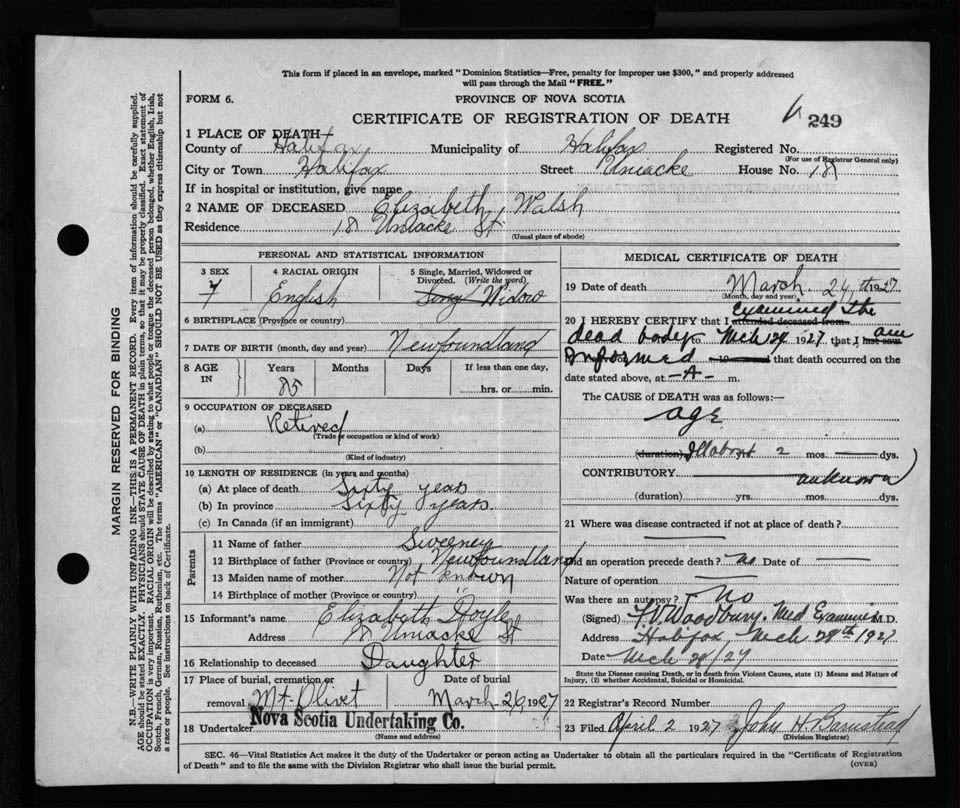 This form if placed in an envelope, marked "Dominion Statistics—Free, penalty for improper use $300," and properly addressed
will pass through the Mail "FREE."
FORM 6.
PROVINCE OF NOVA SCOTIA
CERTIFICATE OF REGISTRATION OF DEATH
249
1 PLACE OF DEATH
County of Halifax Municipality of Halifax Registered No.
(For use of Registrar General only)
City or Town Halifax Street Uniacke House No. 18
If in hospital or institution, give name
2 NAME OF DECEASED Elizabeth Walsh
Residence 18 Uniacke St
(Usual place of abode)
PERSONAL AND STATISTICAL INFORMATION
3 SEX 4 RACIAL ORIGIN 5 Single, Married, Widowed or
Divorced. (Write the word)
F English Widow
6 BIRTHPLACE (Province or country)
7 DATE OF BIRTH (month, day and year) Newfoundland
8 AGE IN Years Months Days If less than one day,
85 hrs. or min.
9 OCCUPATION OF DECEASED
(a) Retired
(Trade or occupation or kind of work)
(b)
(Kind of industry)
10 LENGTH OF RESIDENCE (in years and months)
(a) At place of death Sixty years
(b) In province Sixty years.
(c) In Canada (if an immigrant)
Parents
11 Name of father Sweeney
12 Birthplace of father (Province or country) Newfoundland
13 Maiden name of mother Not known
14 Birthplace of mother (Province or country) "
15 Informant's name Elizabeth Doyle
Address 18 Uniacke St
16 Relationship to deceased Daughter
17 Place of burial, cremation or Date of burial
removal Mt. Olivet March 26, 1927
18 Undertaker Nova Scotia Undertaking Co.
(Name and address)
MEDICAL CERTIFICATE OF DEATH
19 Date of death March 24th 1927
(Month, day and year)
examined the
20 I HEREBY CERTIFY that I attended deceased from
dead body to Mch 24 1927 that I last saw am
Informed 19 that death occurred on the
date stated above, at -A- m.
The CAUSE of DEATH was as follows:—
age
(duration) Ill about 2 mos. dys.
CONTRIBUTORY unknown
(duration) yrs. mos. dys.
21 Where was disease contracted if not at place of death?
Did an operation precede death? no Date of
Nature of operation
Was there an autopsy? no
(Signed) Woodbury. Med Examiner M.D.
Address Halifax, Mch 28th 1927
Date Mch 28/27
State the Disease causing Death, or in Death from Violent Causes, state (1) Means and Nature of
Injury, (2) whether Accidental, Suicidal or Homicidal.
22 Registrar's Record Number
23 Filed April 2 1927 John H. Barnstead
(Division Registrar)
SEC. 46—Vital Statistics Act makes it the duty of the Undertaker or person acting as Undertaker to obtain all the particulars required in the "Certificate of Registration
of Death" and to file the same with the Division Registrar who shall issue the burial permit.
(OVER)
MARGIN RESERVED FOR BINDING
N.B.—WRITE PLAINLY WITH UNFADING INK—THIS IS A PERMANENT RECORD. Every item of information should be carefully supplied.
AGE should be stated EXACTLY. PHYSICIANS should STATE CAUSE OF DEATH in plain terms, so that it may be properly classified. Exact statement of
OCCUPATION is very important. RACIAL ORIGIN will be described by stating to what people or tongue the deceased person belonged, whether English, Irish,
Scotch, French, German, Russian, Ruthenian, etc. The terms "AMERICAN" or "CANADIAN" SHOULD NOT BE USED as they express citizenship but not
a race or people. See instructions on back of Certificate.